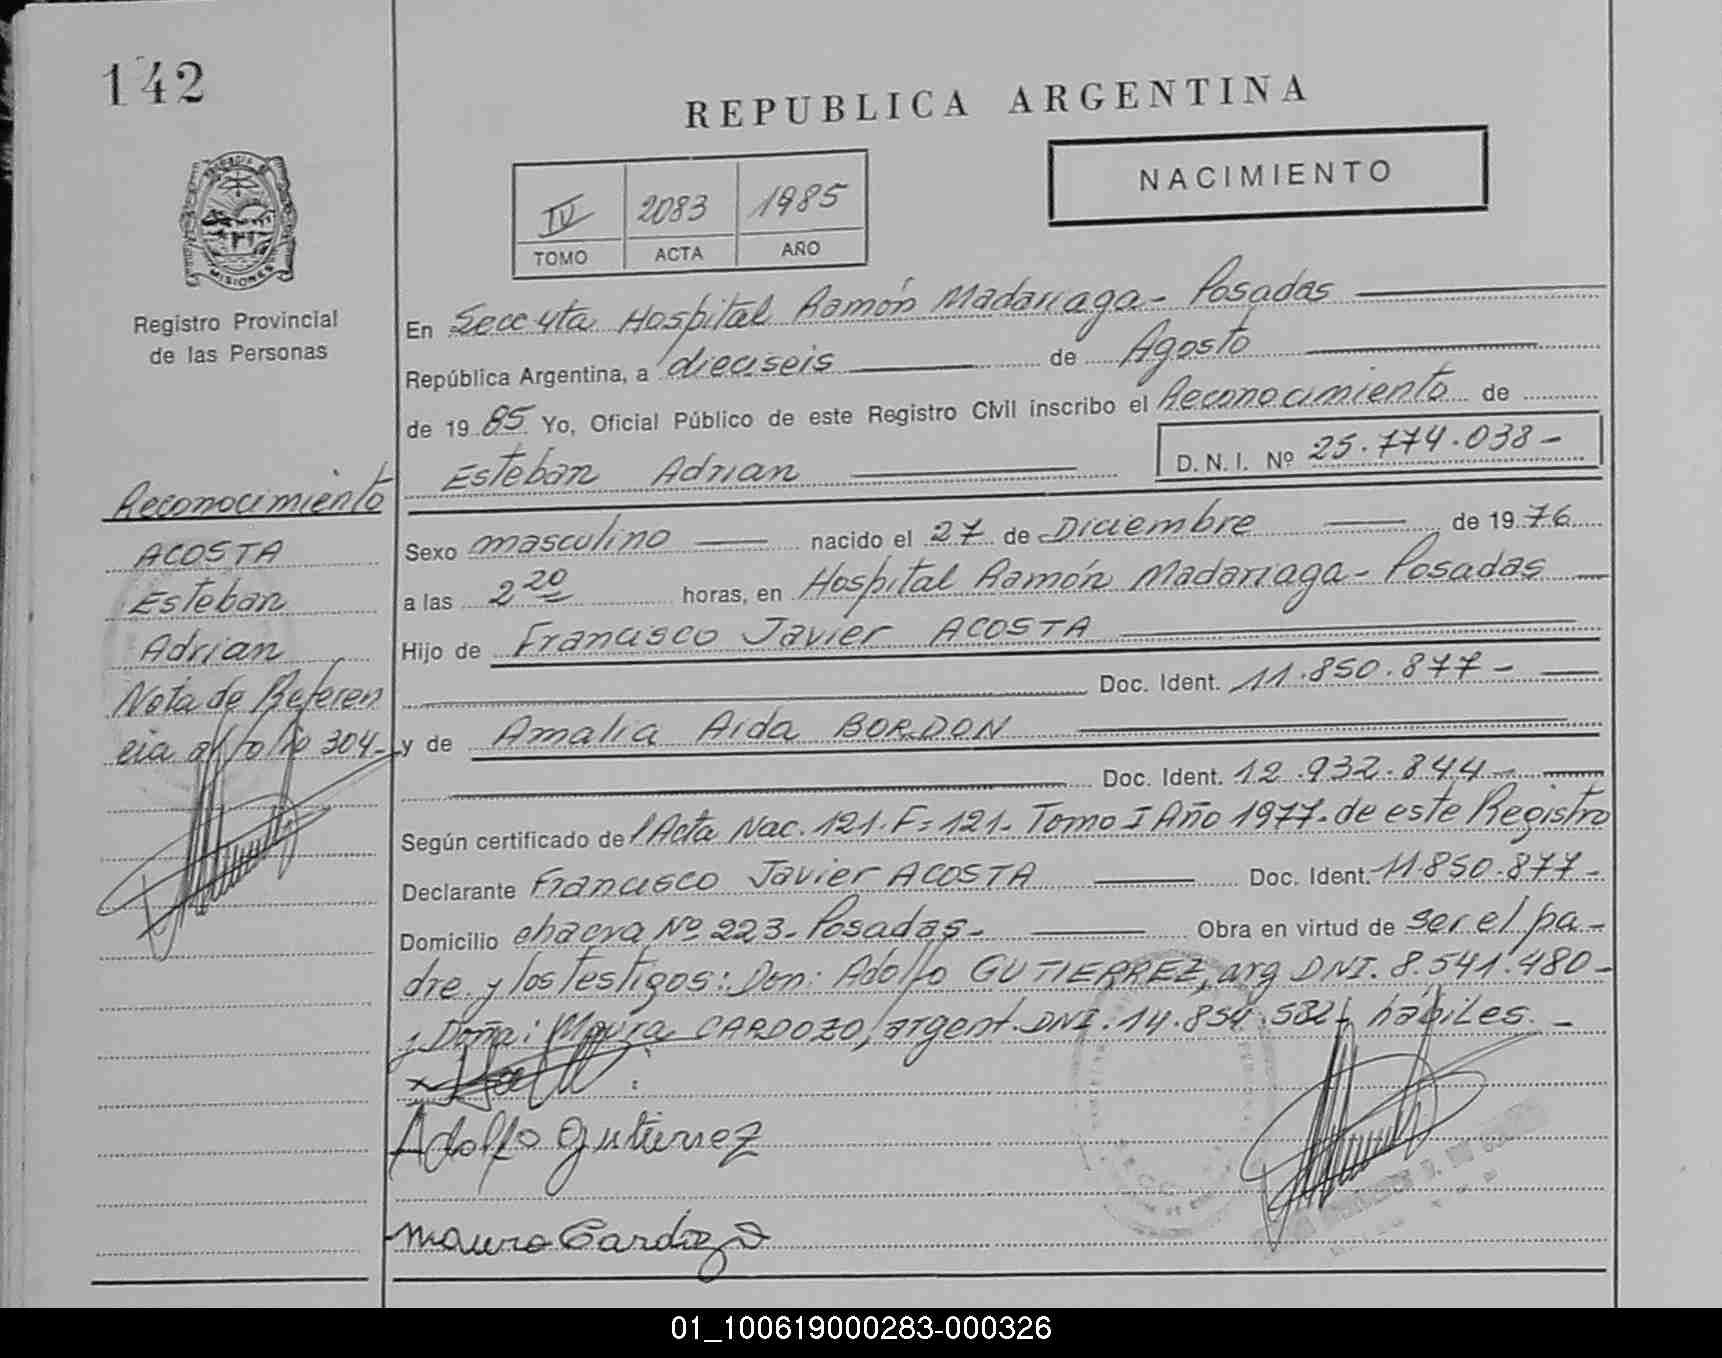 142
REPUBLICA ARGENTINA
NACIMIENTO
IV 2083 1985
TOMO ACTA AÑO
MISIONES
Registro Provincial
de las Personas
En Secc 4ta Hospital Ramón Madariaga - Posadas
República Argentina, a dieciseis de Agosto
de 19 85 Yo, Oficial Público de este Registro Civil inscribo el Reconocimiento de
Esteban Adrian D. N. I. Nº 25.774.038-
Reconocimiento
ACOSTA
Esteban
Adrian
Nota de Referen
cia al folio 304-
Sexo masculino nacido el 27 de Diciembre de 19 76
a las 2 20 horas, en Hospital Ramón Madariaga - Posadas
Hijo de Francisco Javier ACOSTA
Doc. Ident. 11.850.877-
y de Amalia Aida BORDON
Doc. Ident. 12.932.844-
Según certificado de Acta Nac. 121. F= 121- Tomo I Año 1977- de este Registro
Declarante Francisco Javier ACOSTA Doc. Ident. 11.850.877-
Domicilio chacra Nº 223- Posadas- Obra en virtud de ser el pa-
dre y los testigos: Don: Adolfo GUTIERREZ, arg DNI. 8.541.480-
y Doña: Maura CARDOZO, argent. DNI. 14.854.532- hábiles. -
Adolfo Gutierrez
Maura Cardozo
01_100619000283-000326